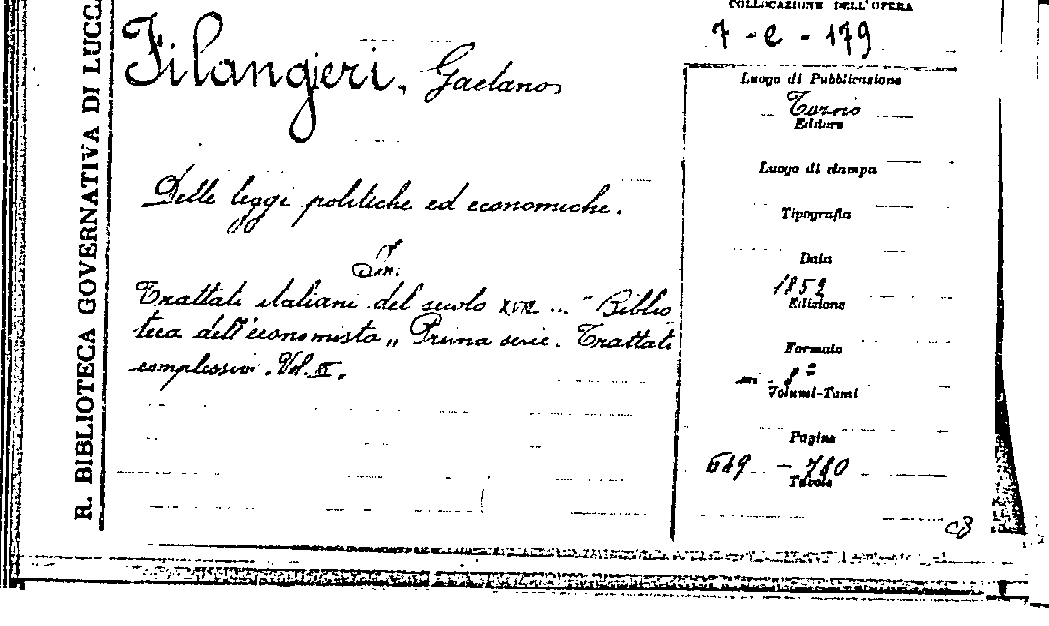 R. BIBLIOTECA GOVERNATIVA DI LUCCA
Filangeri, Gaetano
Delle leggi politiche ed economiche.
In:
Trattati italiani del secolo XVIII ... "Biblio
teca dell'economista" Prima serie. Trattati
complessivi. Vol. III.
COLLOCAZIONE DELL'OPERA
7 - e - 179
Luogo di Pubblicazione
Torino
Editore
Luogo di stampa
Tipografia
Data
1852
Edizione
Formato
in - 8º
Volumi-Tomi
Pagine
649 - 780
Tavole